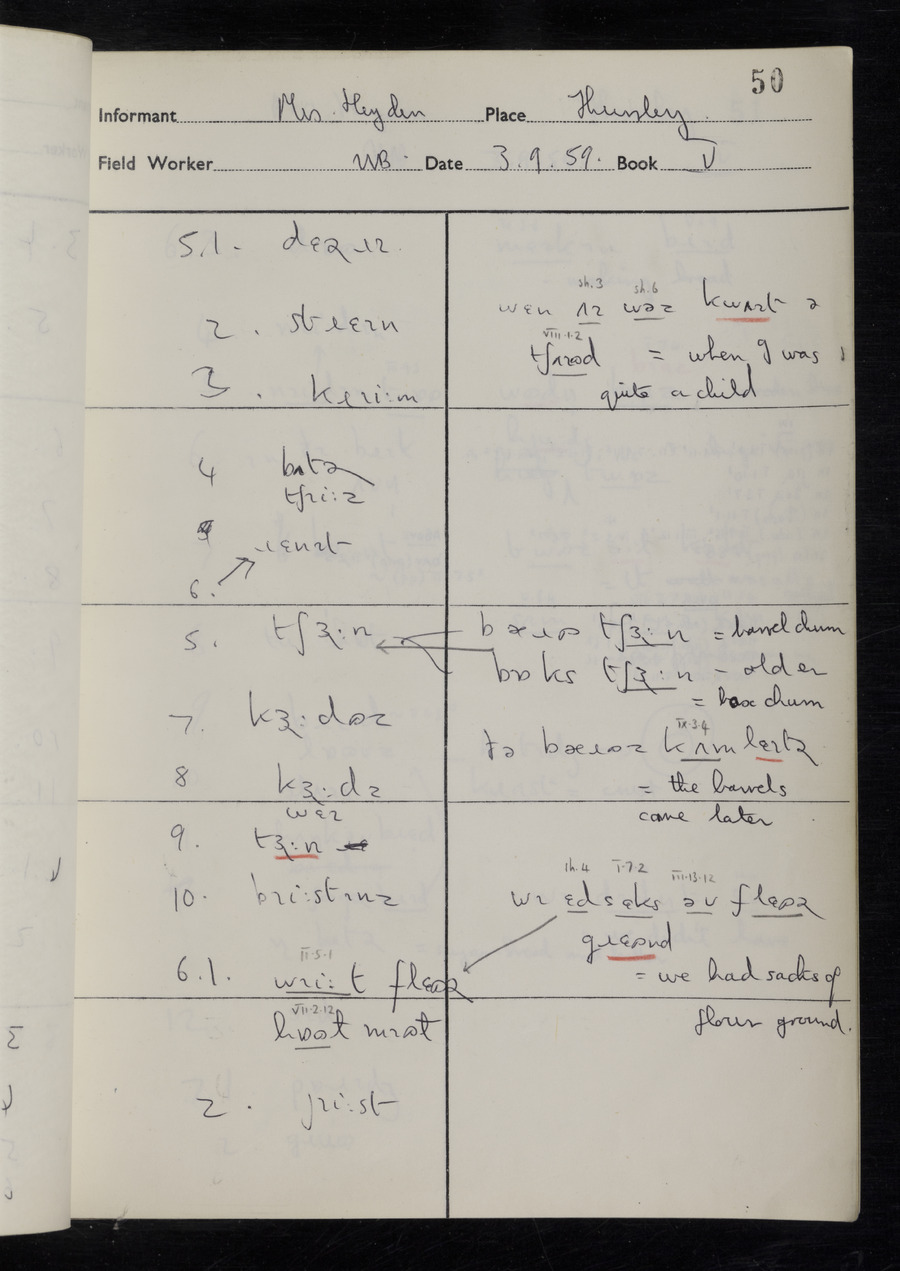 50
Informant Mrs. Heyden Place Thursley
Field Worker WB. Date 3.9.59. Book V
5.1. dɛəɹɪ
2. stɹɛɪn
3. kɹɪi:m
4 bʌtə
tʃɹi:z
ɹɛnɪt
6.
5. tʃɜ:n
7. kɜ:dəz
8 kɜ:dz
wɛɪ
9. tɜ:n
10. bɹi:stɪnz
II-5-1
6.1. wɹi:t flɛəʊə
VII-2-12
hʊət mɪət
2. jɹi:st
sh.3 sh.6
wɛn ʌɪ wəz kwʌɪt ə
VIII-1-2
tʃʌɪəd = when I was
quite a child
bæɹə tʃɜ:n = barrel churn
bɒks tʃɜ:n - older
= box churn
IX-3-4
tə bæɹəz kʌm lɛɪtə
= the barrels
came later
sh.4 I-7-2 III-13-12
wɪ ɛd sæks əv flɛəʊə
gɹɛʊnd
= we had sacks of
flour ground.